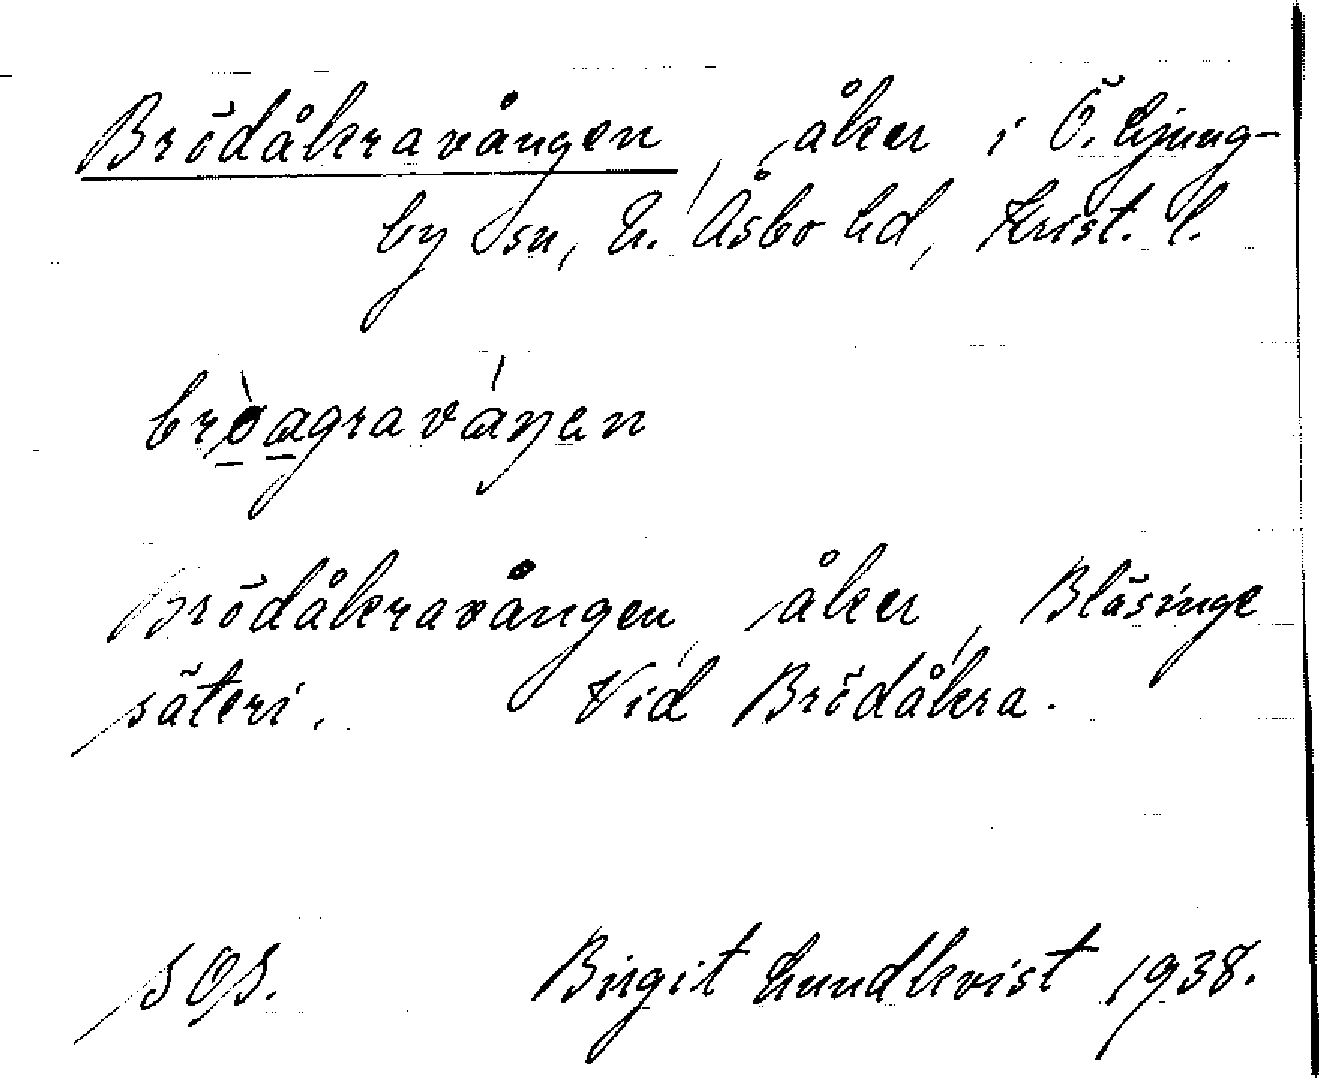 Brödåkravången, åker i Ö. Ljung-
by sn, N. Åsbo hd, Krist. l.
bròagraváŋen
Brödåkravången, åker, Bläsinge
säteri. Vid Brödåkra.
SOS. Birgit Lundkvist 1938.